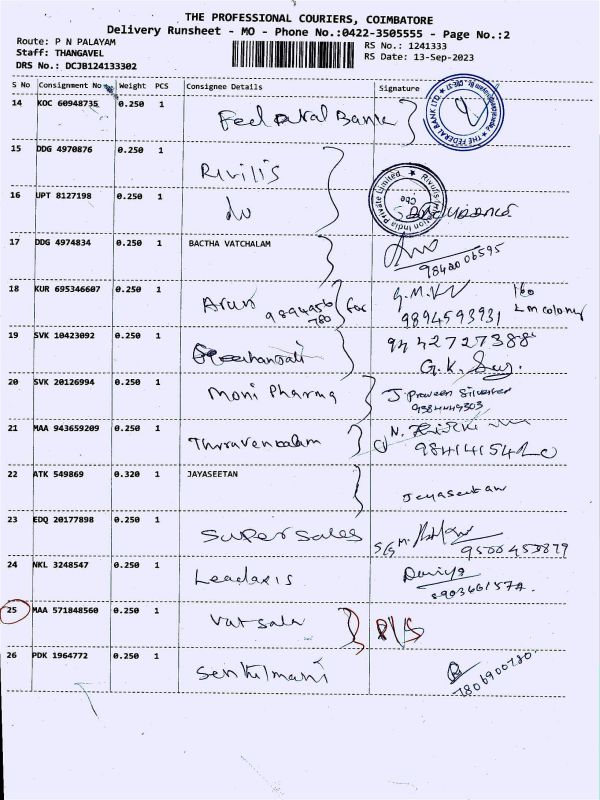 THE PROFESSIONAL COURIERS, COIMBATORE
Delivery Runsheet - MO - Phone No.:0422-3505555 - Page No.:2
Route: P N PALAYAM
RS No.: 1241333
Staff: THANGAVEL
RS Date: 13-Sep-2023
DRS No.: DCJB124133302
S No Consignment No Weight PCS Consignee Details Signature
14 KOC 60948735 0.250 1 Federal Bank
THE FEDERAL BANK LTD.
15 DDG 4970876 0.250 1 Rivilis
Rivulis Irrigation India Private Limited
CBO
16 UPT 8127198 0.250 1 do
17 DDG 4974834 0.250 1 BACTHA VATCHALAM
9842006595
18 KUR 695346607 0.250 1 Arun 9894956780 for G.M. 160
9894593931 L m colony
19 SVK 10423092 0.250 1 9442727388
G.K.
20 SVK 20126994 0.250 1 Moni Pharma J. Praveen Silvester
9384449303
21 MAA 943659209 0.250 1 Thiruvenkalam N.
22 ATK 549869 0.320 1 JAYASEETAN Jeyaseetan
23 EDQ 20177898 0.250 1 Super Sales 9500453879
24 NKL 3248547 0.250 1 Leadaxis
8903661572.
25 MAA 571848560 0.250 1 Vatsala
26 PDK 1964772 0.250 1 Senthilmani
7806900780.